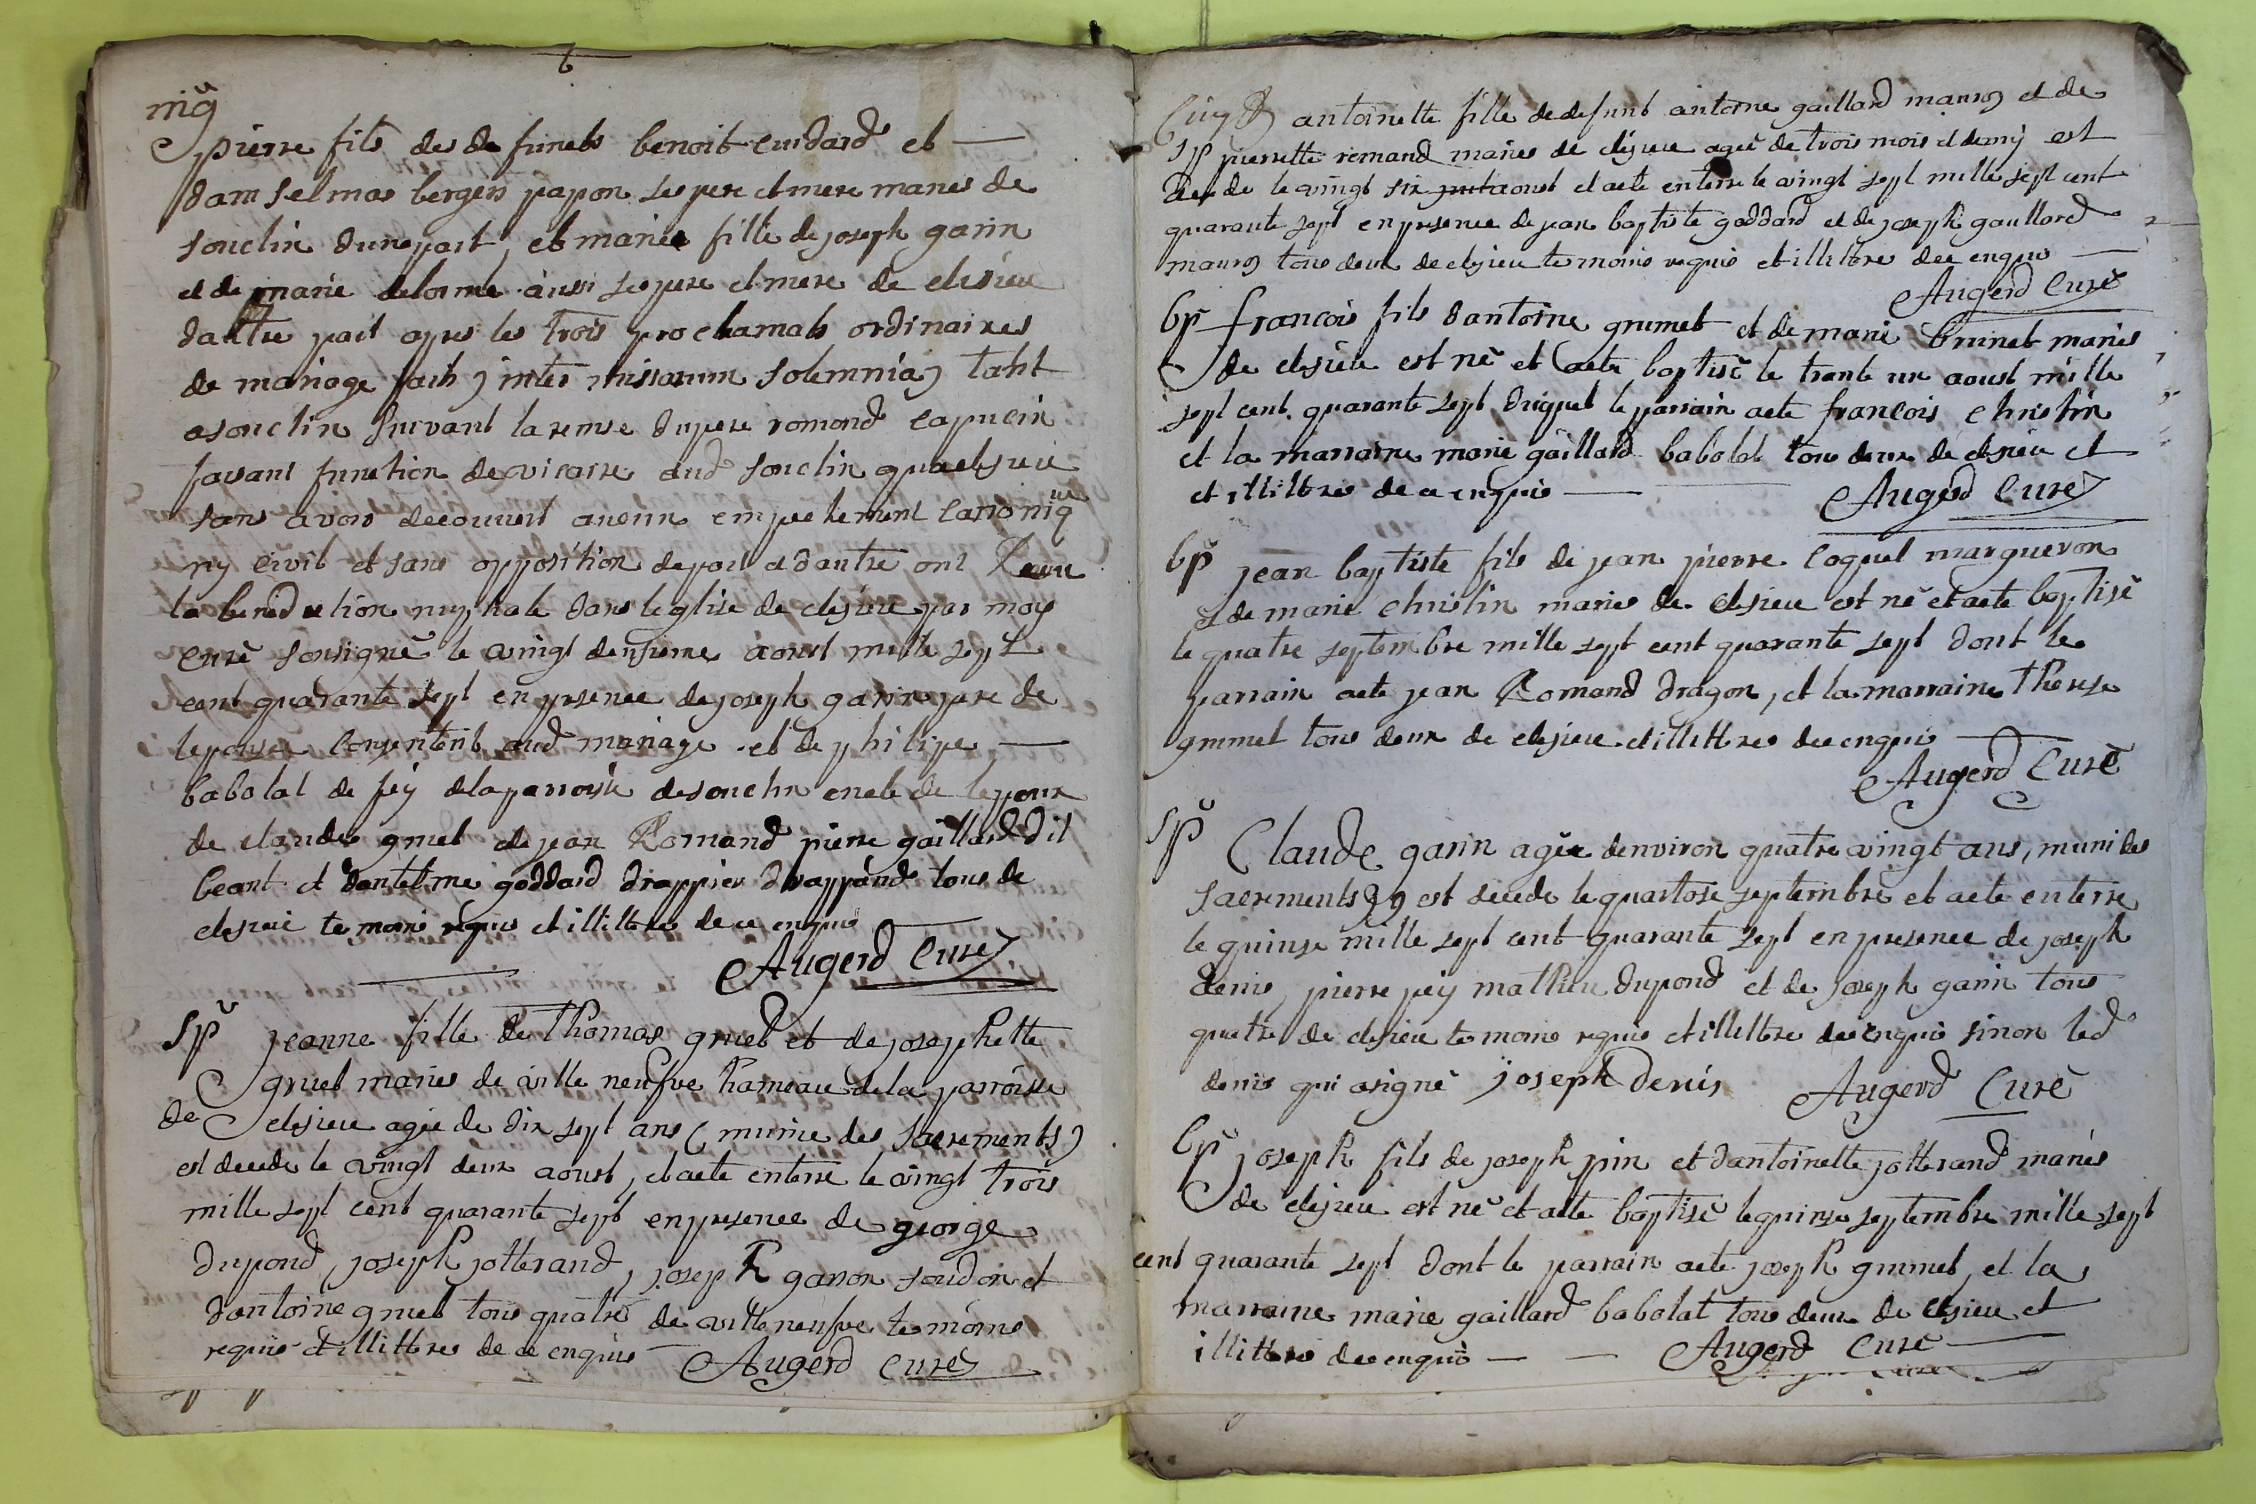 6
mg
pierre fils des de functs benoit cuidard et
dam selmas bergers papon ses pere et mere maries de
souclin dune part, et marie fille de joseph garin
et de marie delorme aussi ses pere et mere de clesieu
dautre part apres les trois proclamats ordinaires
de mariage faits inter missarum solemnia, tant
a souclin suivant la remise du pere romond capucin
faisant function de vicaire aud souclin qua clesieu
sans avoir decouvert aucun empechement canoniq
ny civil et sans opposition de part et dautre ont Recu
la benediction nuptiale dans leglise de clesieu par moy
curé soussigné le vingt deusieme aoust mille sept
cent quarante sept en presence de joseph garin pere de
lepouse consentent aud mariage et de philipe
babolat de fey de la parroisse de souclin oncle de lepoux
de claude gruet de jean Romand pierre gaillard dit
beant et dantelme goddard drappier drappand tous de
clesieu temoins requis et illittres de ce enquis
Augerd Curé
sp jeanne fille de Thomas gruet et de josephette
gruet maries de ville neufve hameau de la parroisse
de clesieu agée de dix sept ans (munie des sacrements)
est decede le vingt deux aoust, et a ete enterre le vingt trois
mille sept cent quarante sept en presence de george
dupond, joseph jotterand, joseph garron soudon et
dantoine gruet tous quatre de ville neufve temoins
requis et illittres de ce enquis
Augerd Curé
antoinette fille de defunt antoine gaillard mauros et de
sp pierrette romand maries de clesieu agée de trois mois et demy est
decede le vingt six aoust et a ete enterre le vingt sept mille sept cent
quarante sept en presence de jean baptiste goddard et de joseph gaillard
mauros tous deux de clesieu temoins requis et illittres de ce enquis
Augerd Curé
bp francois fils dantoine grumet et de marie brunet maries
de clesieu est né et a ete baptisé le trante un aoust mille
sept cent quarante sept duquel le parrain a ete francois christin
et la marraine marie gaillard babolat tous deux de clesieu et
et illittres de ce enquis
Augerd Curé
bp jean baptiste fils de jean pierre coquet margueron
et de marie christin maries de clesieu est né et a ete baptisé
le quatre septembre mille sept cent quarante sept dont le
parrain a ete jean Romand dragon, et la marraine Therese
grumet tous deux de clesieu et illittres de ce enquis
Augerd Curé
sp Claude garin agée denviron quatre vingt ans, muni des
sacrements est decede le quattorse septembre et a ete enterre
le quinse mille sept cent quarante sept en presence de joseph
denis, pierre pey mathieu dupond et de joseph garin tous
quatre de clesieu temoins requis et illittres de ce enquis sinon led
denis qui a signé joseph denis Augerd Curé
bp joseph fils de joseph pin et dantoinette jotterand maries
de clesieu est né et a ete baptisé le quinse septembre mille sept
cent quarante sept dont le parrain a ete joseph grumet, et la
marraine marie gaillard babolat tous deux de clesieu et
illittres de ce enquis Augerd Curé